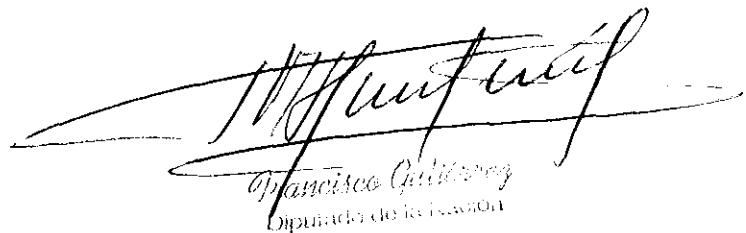 Francisco Gutiérrez
Diputado de la Nación